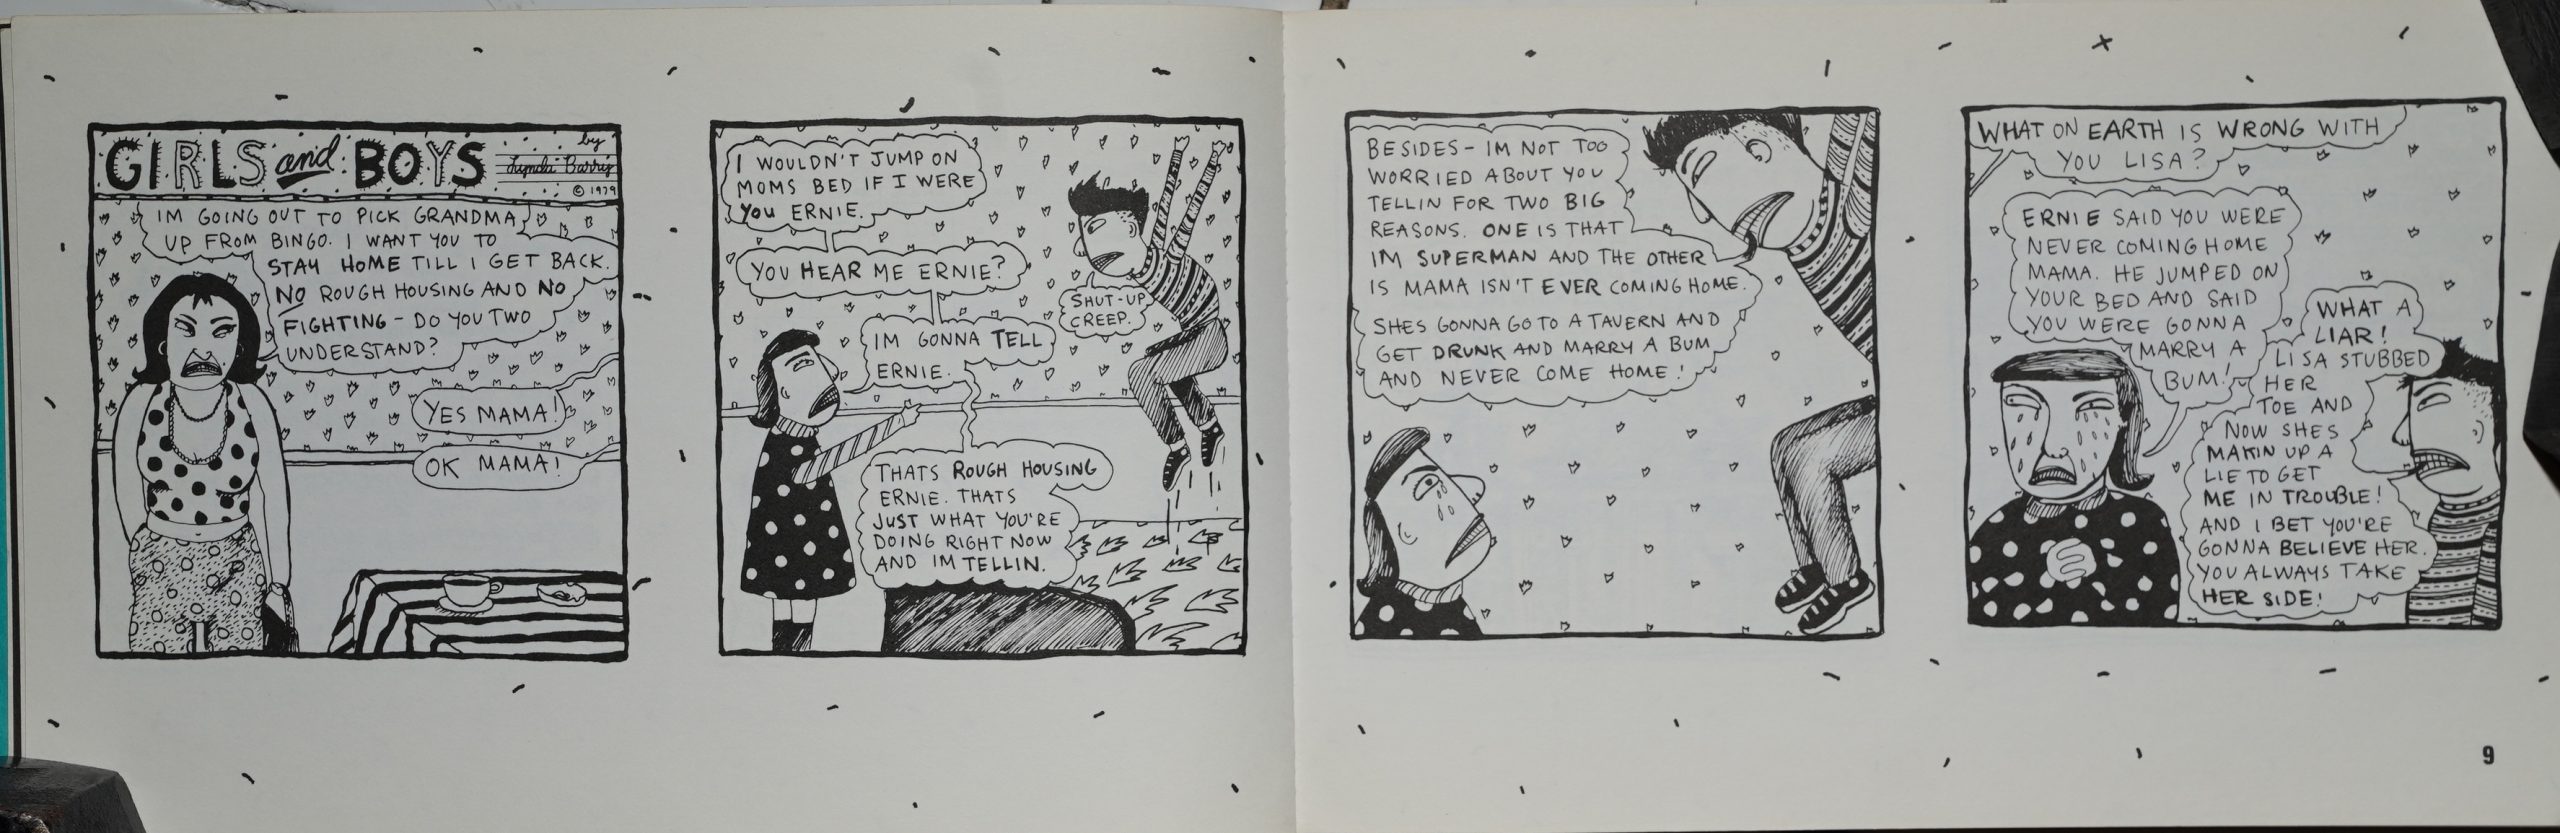 GIRLS and BOYS
by
Lynda Barry
© 1979
IM GOING OUT TO PICK GRANDMA
UP FROM BINGO. I WANT YOU TO
STAY HOME TILL I GET BACK.
NO ROUGH HOUSING AND NO
FIGHTING - DO YOU TWO
UNDERSTAND?
YES MAMA!
OK MAMA!
I WOULDN'T JUMP ON
MOMS BED IF I WERE
YOU ERNIE.
YOU HEAR ME ERNIE?
SHUT-UP
CREEP.
IM GONNA TELL
ERNIE.
THATS ROUGH HOUSING
ERNIE. THATS
JUST WHAT YOU'RE
DOING RIGHT NOW
AND IM TELLIN.
BESIDES - IM NOT TOO
WORRIED ABOUT YOU
TELLIN FOR TWO BIG
REASONS. ONE IS THAT
IM SUPERMAN AND THE OTHER
IS MAMA ISN'T EVER COMING HOME.
SHES GONNA GO TO A TAVERN AND
GET DRUNK AND MARRY A BUM
AND NEVER COME HOME!
WHAT ON EARTH IS WRONG WITH
YOU LISA?
ERNIE SAID YOU WERE
NEVER COMING HOME
MAMA. HE JUMPED ON
YOUR BED AND SAID
YOU WERE GONNA
MARRY A
BUM!
WHAT A
LIAR!
LISA STUBBED
HER
TOE AND
NOW SHES
MAKIN UP A
LIE TO GET
ME IN TROUBLE!
AND I BET YOU'RE
GONNA BELIEVE HER.
YOU ALWAYS TAKE
HER SIDE!
9